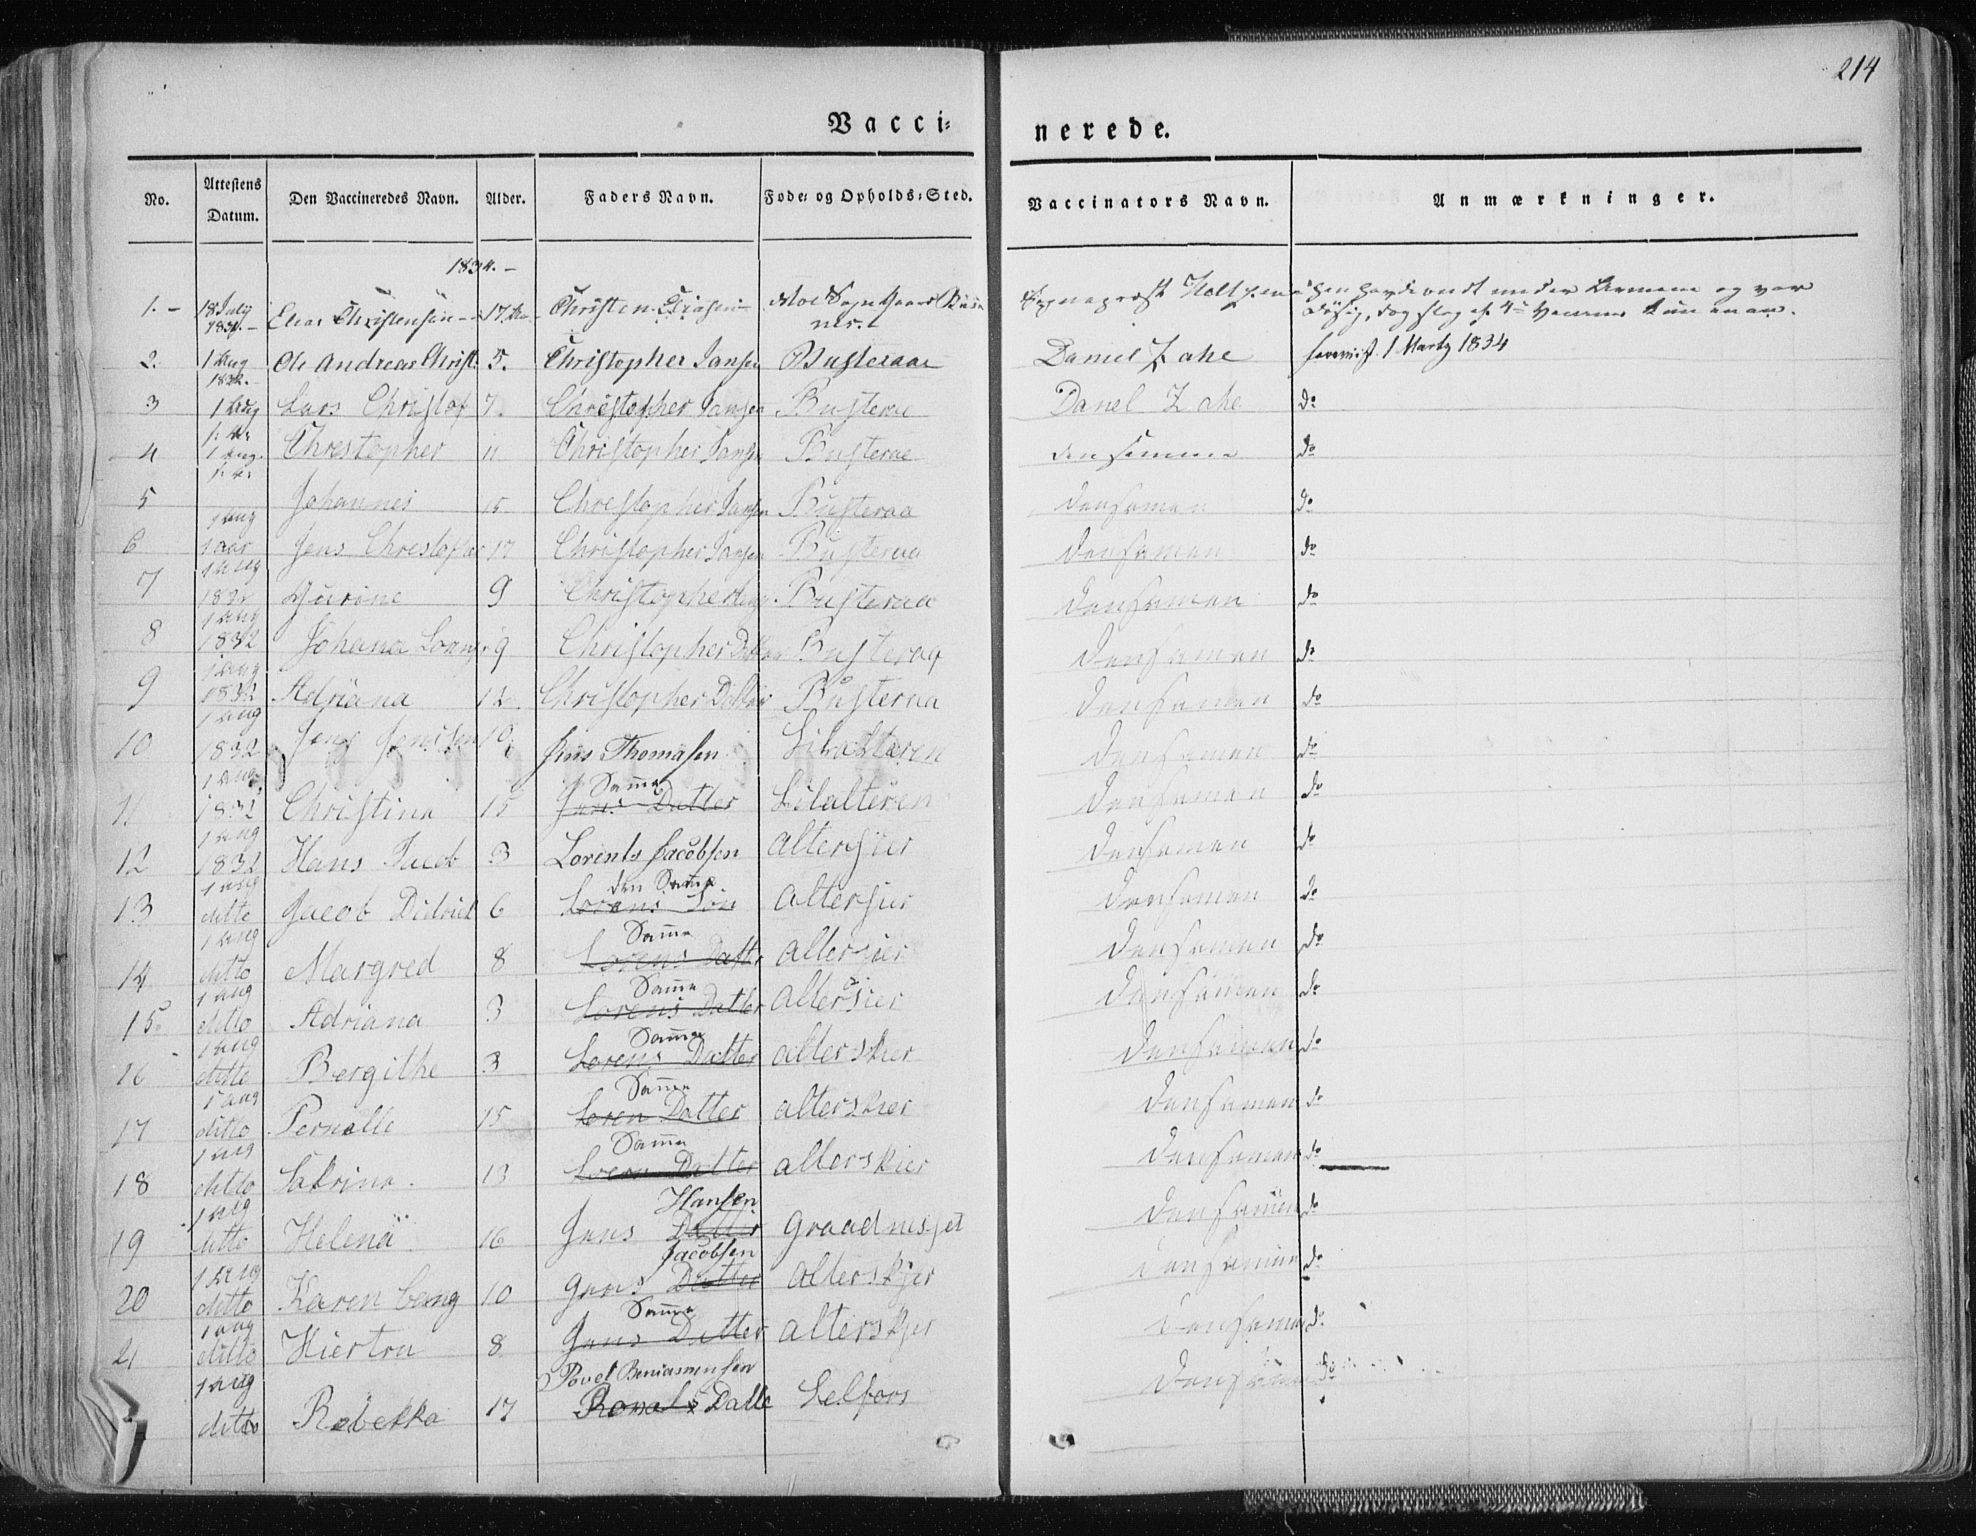 214
Vacci- nerede.
No. Attestens Datum. Den Vaccineredes Navn. Alder. Faders Navn. Føde- og Opholds-Sted. Vaccinators Navn. Anmærkninger.
1834.-
1.- 18 July 1834.- Elias Christensen 17 Christen Sognepræst hun havde ondt under Armene og var
2. 1 Aug 1832.- Ole Andreas Christ 5. Christopher Jansen Busteraae Daniel Zahe forevist 1 Marty 1834
3 1 Aug Lars Christof 7. Christopher Jansen Busterae Danel Zahe do
4 1 Aug. Chrestopher 11 Christopher Jansen Busterae den samme do
5 Johannes 15 Chrestopher Jansen Busteraa densamen do
6 1 Aug Jens Chrestofer 17 Christopher Jansen Busteraa densamen do
7 1 Aug 1832 Gurine 9 Christopher Busteraa densamen do
8 1 Aug 1832 Johana 9 Christopher Datter Busteraa densamen do
9 1 Aug 1832 Adriana 12 Christopher Datter Busteraa densamen do
10 1 Aug 1832 Jens Jensen 10 Jens Thomasen Lilalteren densamen do
11 1 Aug 1832 Christina 15 Samme Jens Datter Lilalteren densamen do
12 1 Aug 1832 Hans Jacob 3 Lorents Jacobsen altersier densamen do
13 1 Aug ditto Jacob Didrick 6 den Samme Lorens Søn altersier densamen do
14 1 Aug ditto Margred 8 Samme Lorens Datter altersier densamen do
15 1 aug ditto Adriana 3 Samme Lorens Datter altersier densamen do
16 1 Aug ditto Bergithe 3 Samme Lorens Datter alterskier densamen do
17 1 aug ditto Pernelle 15 Samme Loren Datter alterskier densamen do
18 1 aug ditto Katrina. 13 Samme Loren Datter alterskier densamen do
19 1 aug ditto Helena 16 Jens Hansen Datter Graadnesset densamen do
20 1 Aug ditto Karen 10 Jens Jacobsen Datter alterskjer densamen do
21 1 aug ditto Hiertru 8 Samme Jens Datter alterskjer densamen do
1 aug ditto Rebekka 17 Povel Beniamensen Datte Selfors densamen do